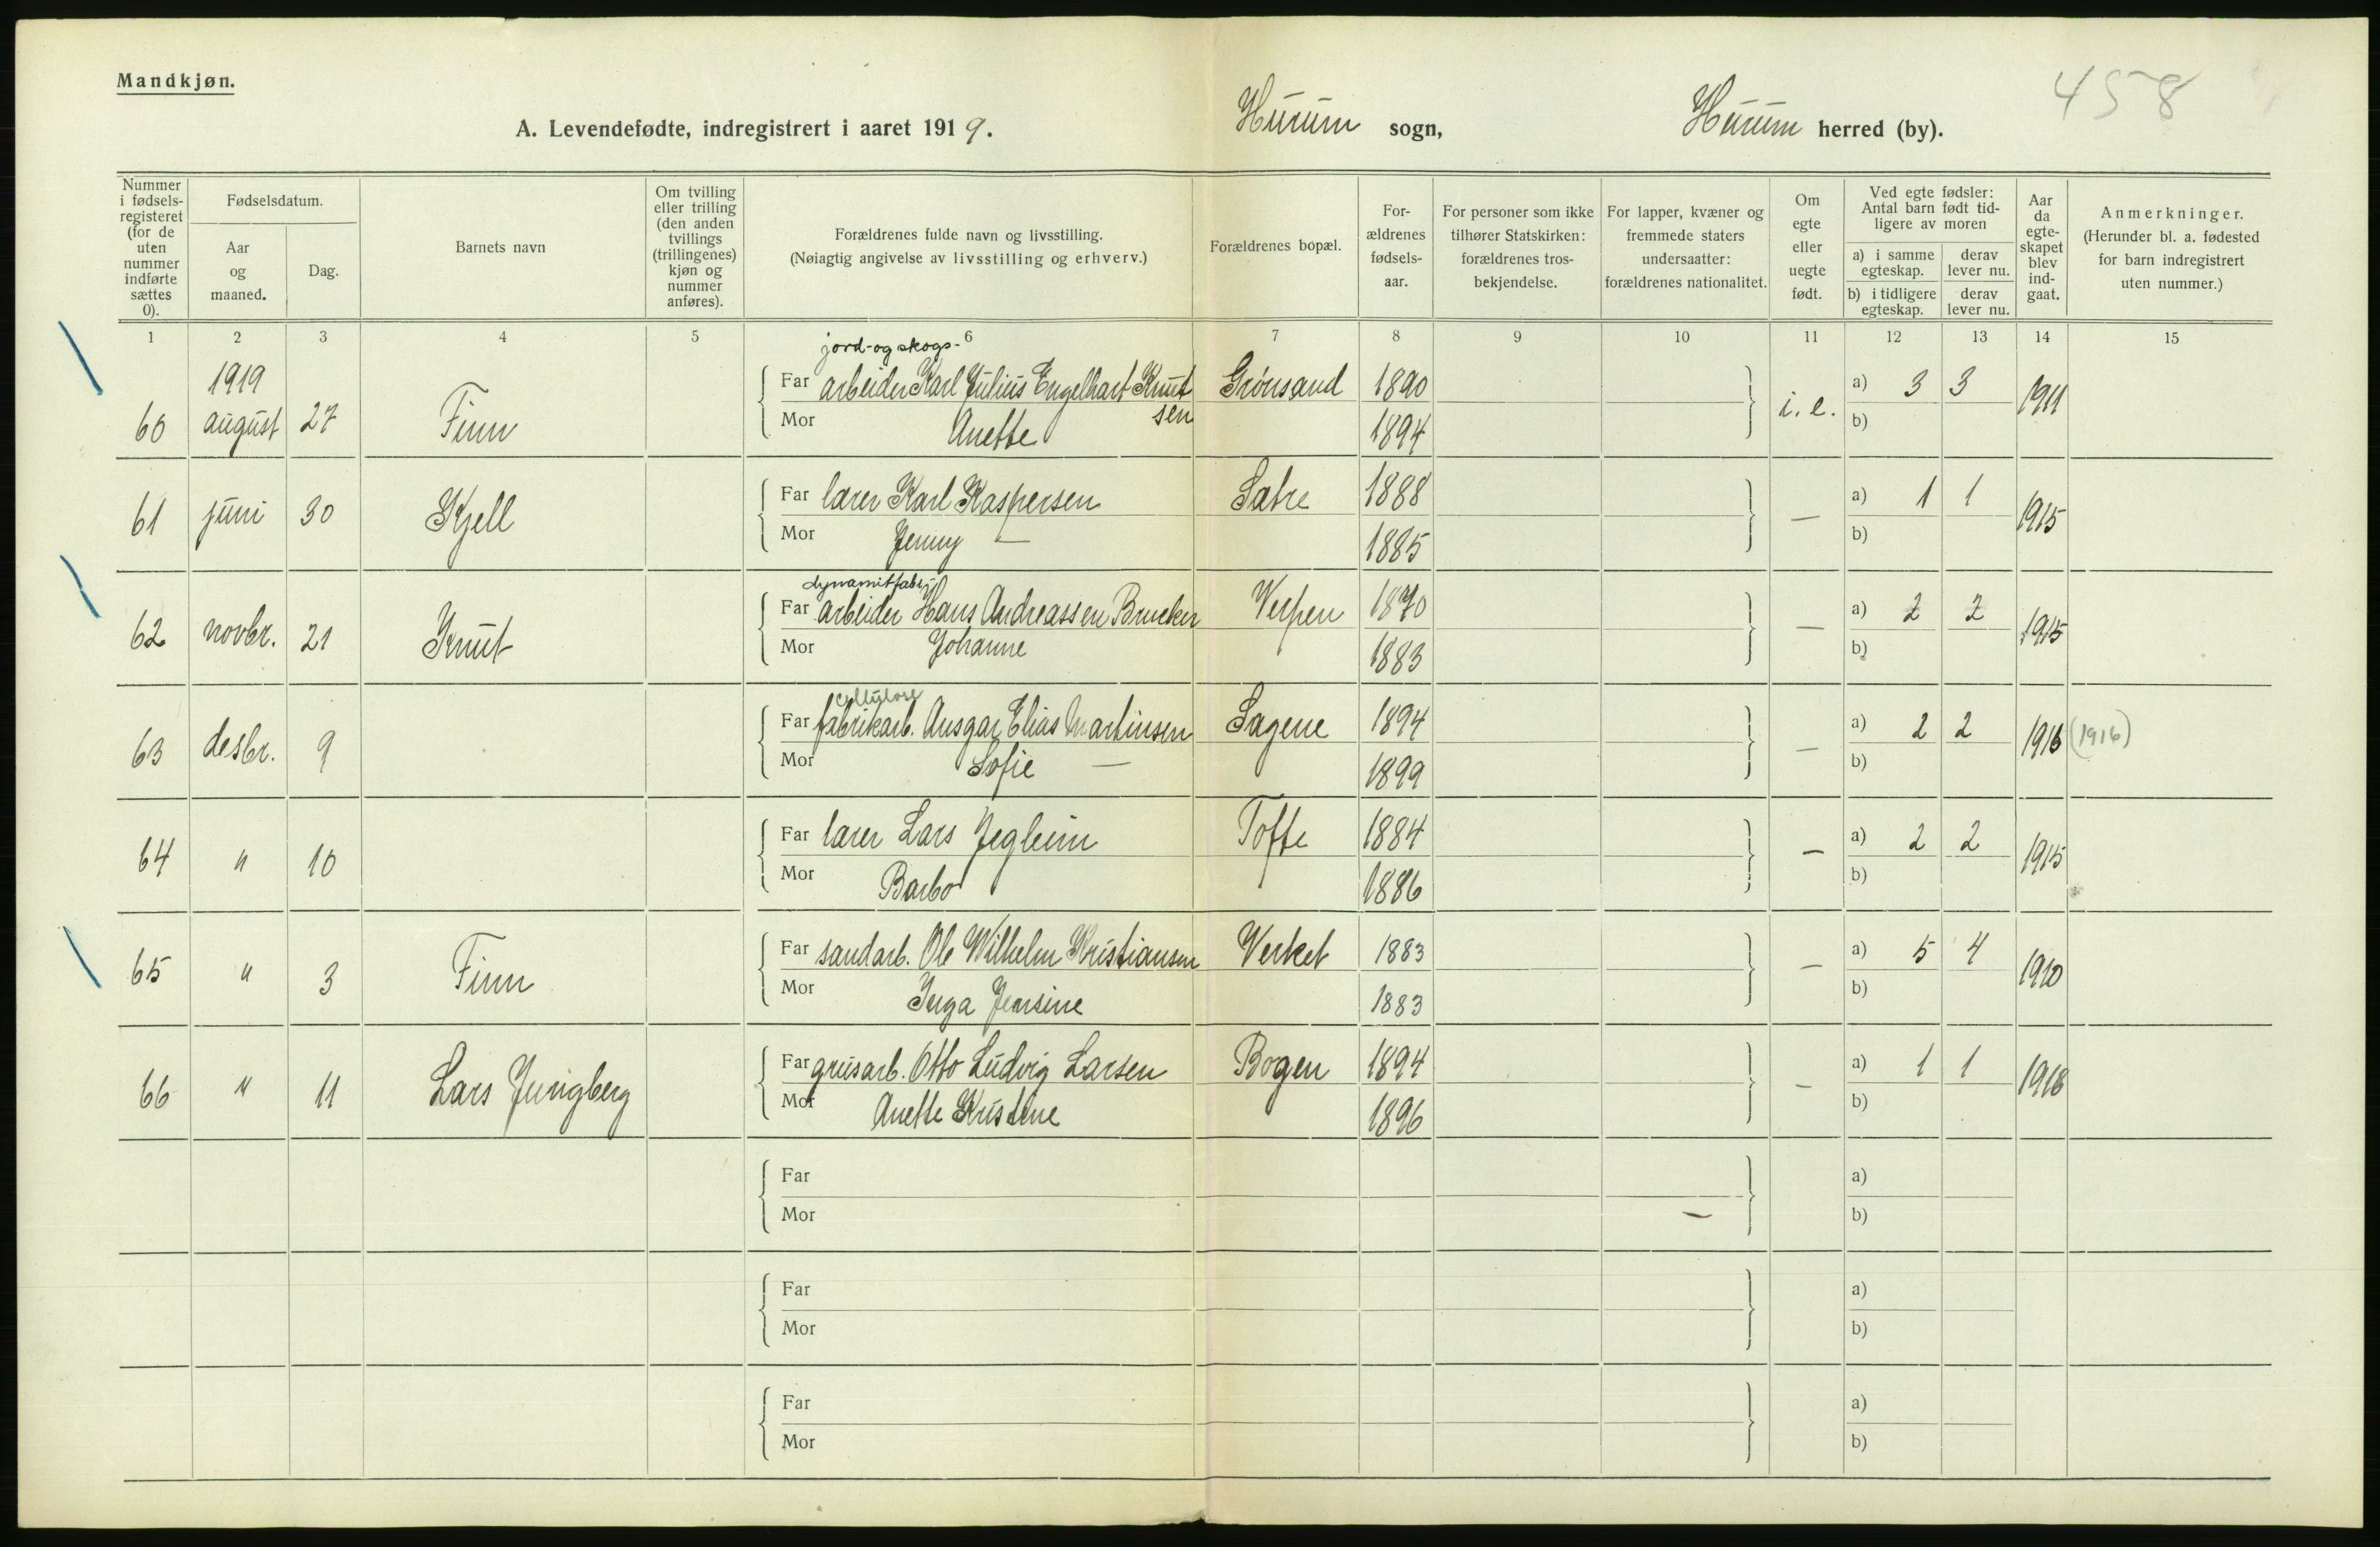 Mandkjøn.
458
A. Levendefødte, indregistrert i aaret 1919. Hurum sogn, Hurum herred (by).
Nummer i fødsels-registeret (for de uten nummer indførte sættes 0).
Fødselsdatum.
Aar og maaned.
Dag.
Barnets navn
Om tvilling eller trilling (den anden tvillings (trillingenes) kjøn og nummer anføres).
Forældrenes fulde navn og livsstilling.
(Nøiagtig angivelse av livsstilling og erhverv.)
Forældrenes bopæl.
For-ældrenes fødsels-aar.
For personer som ikke tilhører Statskirken: forældrenes tros-bekjendelse.
For lapper, kvæner og fremmede staters undersaatter: forældrenes nationalitet.
Om egte eller uegte født.
Ved egte fødsler: Antal barn født tid-ligere av moren
a) i samme egteskap.
derav lever nu.
b) i tidligere egteskap.
derav lever nu.
Aar da egte-skapet blev ind-gaat.
Anmerkninger.
(Herunder bl. a. fødested for barn indregistrert uten nummer.)
1 2 3 4 5 6 7 8 9 10 11 12 13 14 15
jord-og skogs-
1919
Far arbeider Karl Julius Engelhart Knut Grönsand 1890 a) 3 3
60 august 27 Finn i. e. 1911
Mor Anette sen 1894 b)
Far lærer Karl Kaspersen Sætre 1888 a) 1 1
61 juni 30 Kjell — 1915
Mor Jenny — 1885 b)
dynamitfabr.
Far arbeider Hans Andreassen Verpen 1870 a) 2 2
62 novbr. 21 Knut — 1915
Mor Johanne 1883 b)
cellulose
Far fabrikarb. Ansgar Elias Martinsen Sagene 1894 a) 2 2
63 desbr. 9 — 1916 (1916)
Mor Sofie — 1899 b)
Far lærer Lars Jegleim Tofte 1884 a) 2 2
64 " 10 — 1915
Mor Barbo 1886 b)
Far sandarb. Ole Wilhelm Kristiansen Verket 1883 a) 5 4
65 " 3 Finn — 1910
Mor Inga Jensine 1883 b)
Far grusarb. Otto Ludvig Larsen Bogen 1894 a) 1 1
66 " 11 Lars Jungberg — 1918
Mor Anette Kristine 1896 b)
Far a)
Mor — b)
Far a)
Mor b)
Far a)
Mor b)